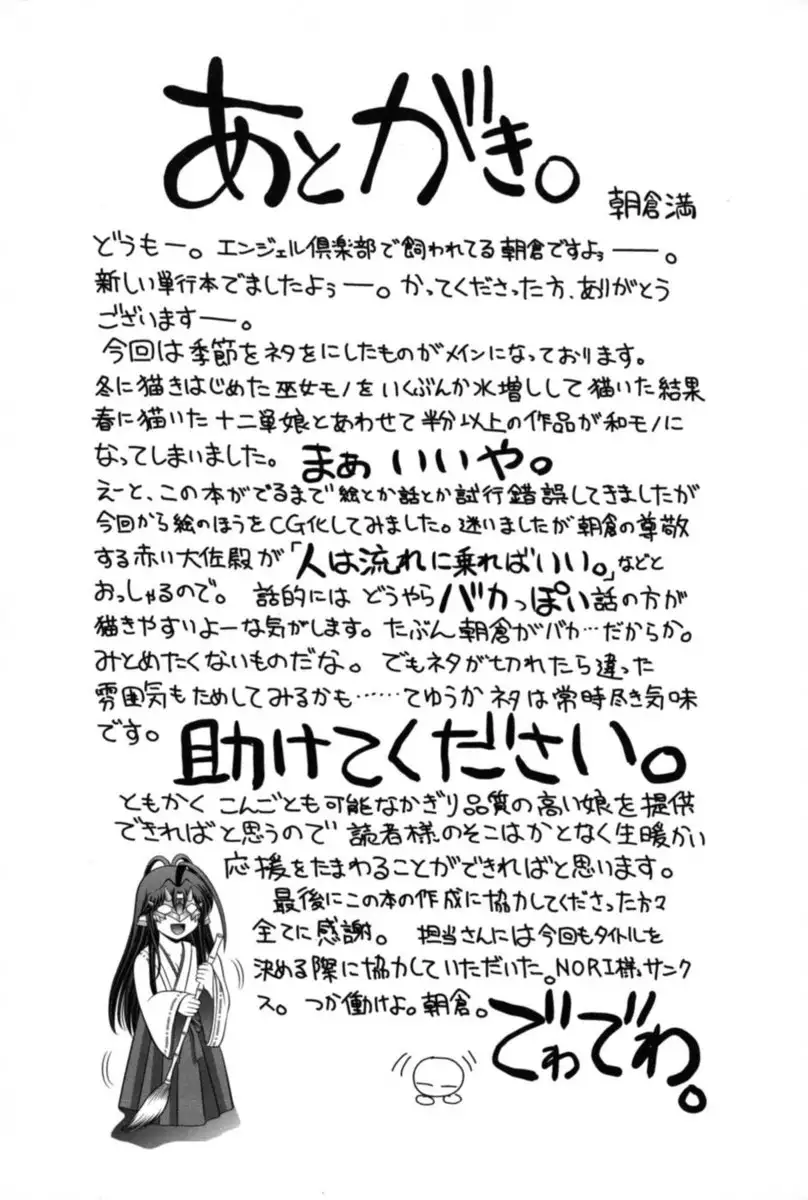 あとがき。
朝倉満
どうもー。エンジェル倶楽部で飼われてる朝倉ですよぅ――。
新しい単行本でましたよぅ――。かってくださった方、ありがとう
ございます――。
今回は季節をネタをにしたものがメインになっております。
冬に猫きはじめた巫女モノをいくぶんか水増しして猫いた結果
春に猫いた十二単娘とあわせて半分以上の作品が和モノに
なってしまいました。まぁいいや。
えーと、この本がでるまで絵とか話とか試行錯誤してきましたが
今回から絵のほうをCG化してみました。迷いましたが朝倉の尊敬
する赤い大佐殿が「人は流れに乗ればいい。」などと
おっしゃるので。話的にはどうやらバカっぽい話の方が
猫きやすいよーな気がします。たぶん朝倉がバカ…だからか。
みとめたくないものだな。でもネタが切れたら違った
雰囲気もためしてみるかも……てゆうかネタは常時尽き気味
です。助けてください。
ともかくこんごとも可能なかぎり品質の高い娘を提供
できればと思うので読者様のそこはかとなく生暖かい
応援をたまわることができればと思います。
最後にこの本の作成に協力してくださった方々
全てに感謝。担当さんには今回もタイトルを
決める際に協力していただいた。NORI様サンク
ス。つか働けよ。朝倉。でわでわ。